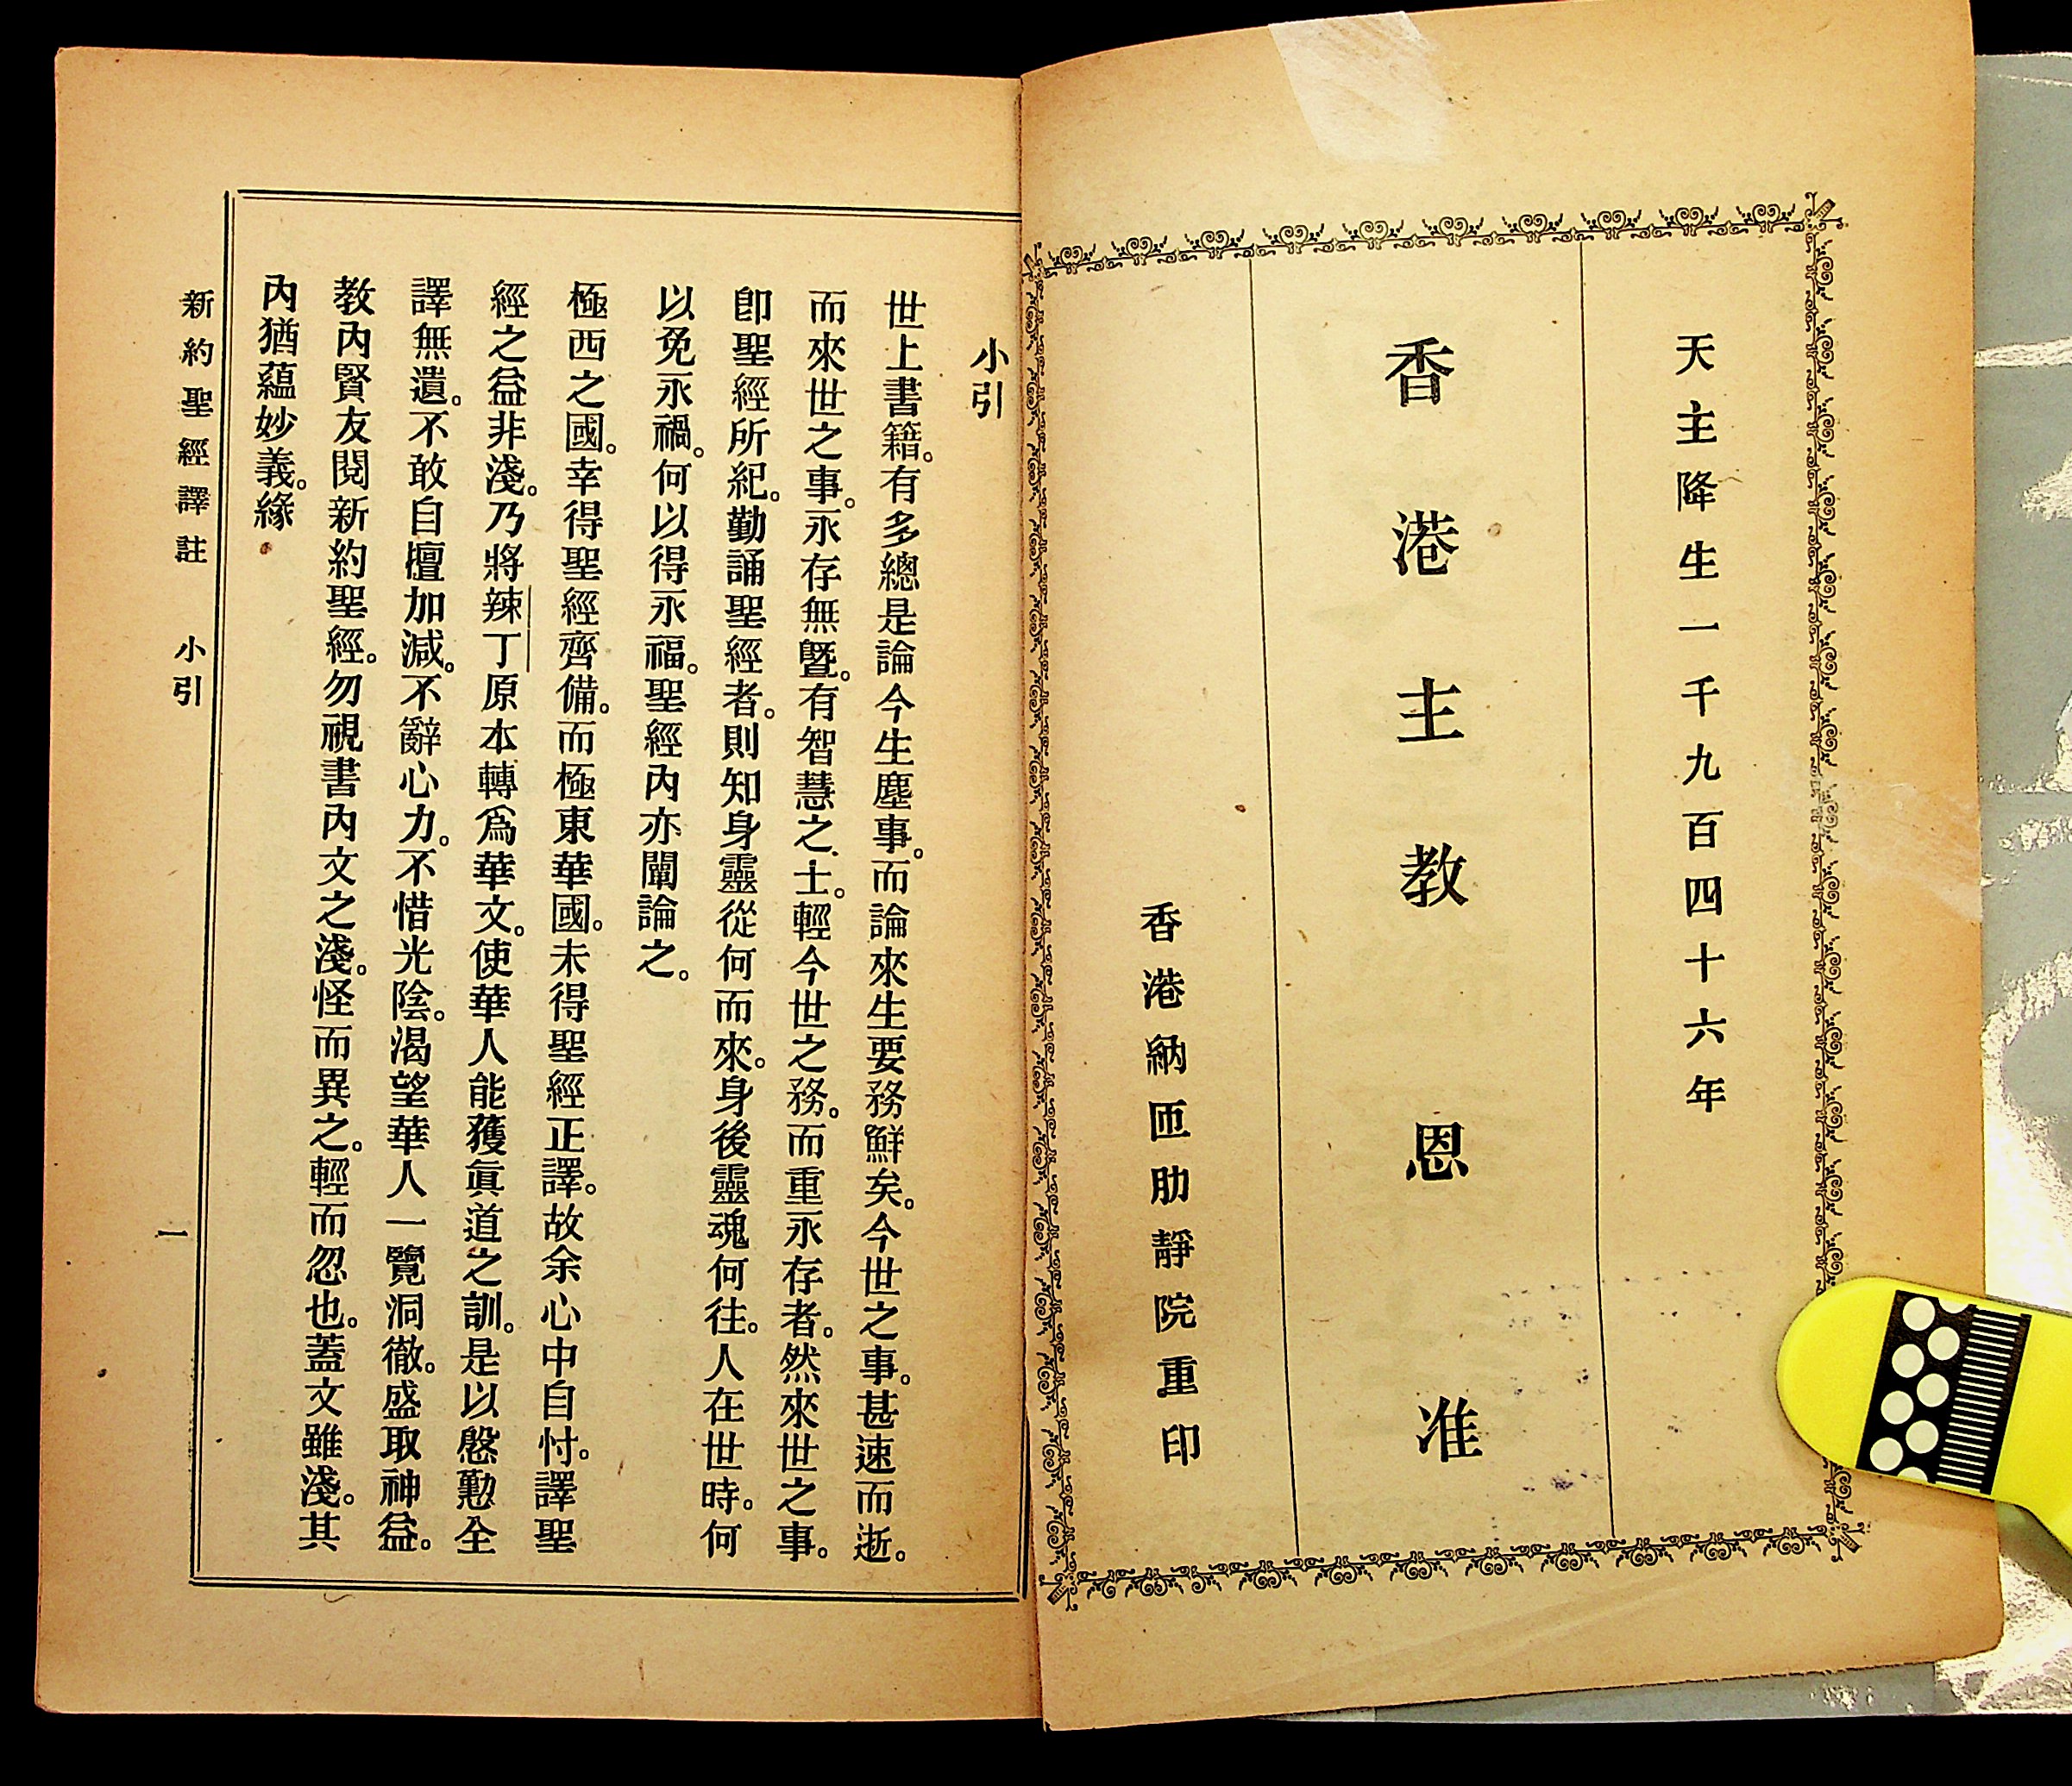 天主降生一千九百四十六年
香港主教 恩 准
香港納匝肋靜院重印
小引
世上書籍。有多總是論今生塵事。而論來生要務鮮矣。今世之事。甚速而逝。
而來世之事。永存無曁。有智慧之士。輕今世之務。而重永存者。然來世之事。
卽聖經所紀。勤誦聖經者。則知身靈從何而來。身後靈魂何往。人在世時。何
以免永禍。何以得永福。聖經內亦闡論之。
極西之國。幸得聖經齊備。而極東華國。未得聖經正譯。故余心中自忖。譯聖
經之益非淺。乃將辣丁原本轉爲華文。使華人能獲眞道之訓。是以慇懃全
譯無遺。不敢自檀加減。不辭心力。不惜光陰。渴望華人一覽洞徹。盛取神益。
教內賢友閱新約聖經。勿視書內文之淺。怪而異之。輕而忽也。蓋文雖淺。其
內猶蘊妙義。緣
新約聖經譯註 小引 一